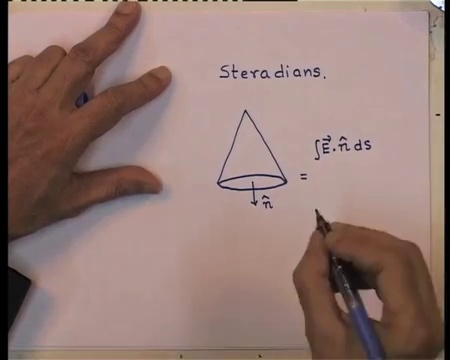 Steradians.
∫E⃗.n̂ ds
=
n̂